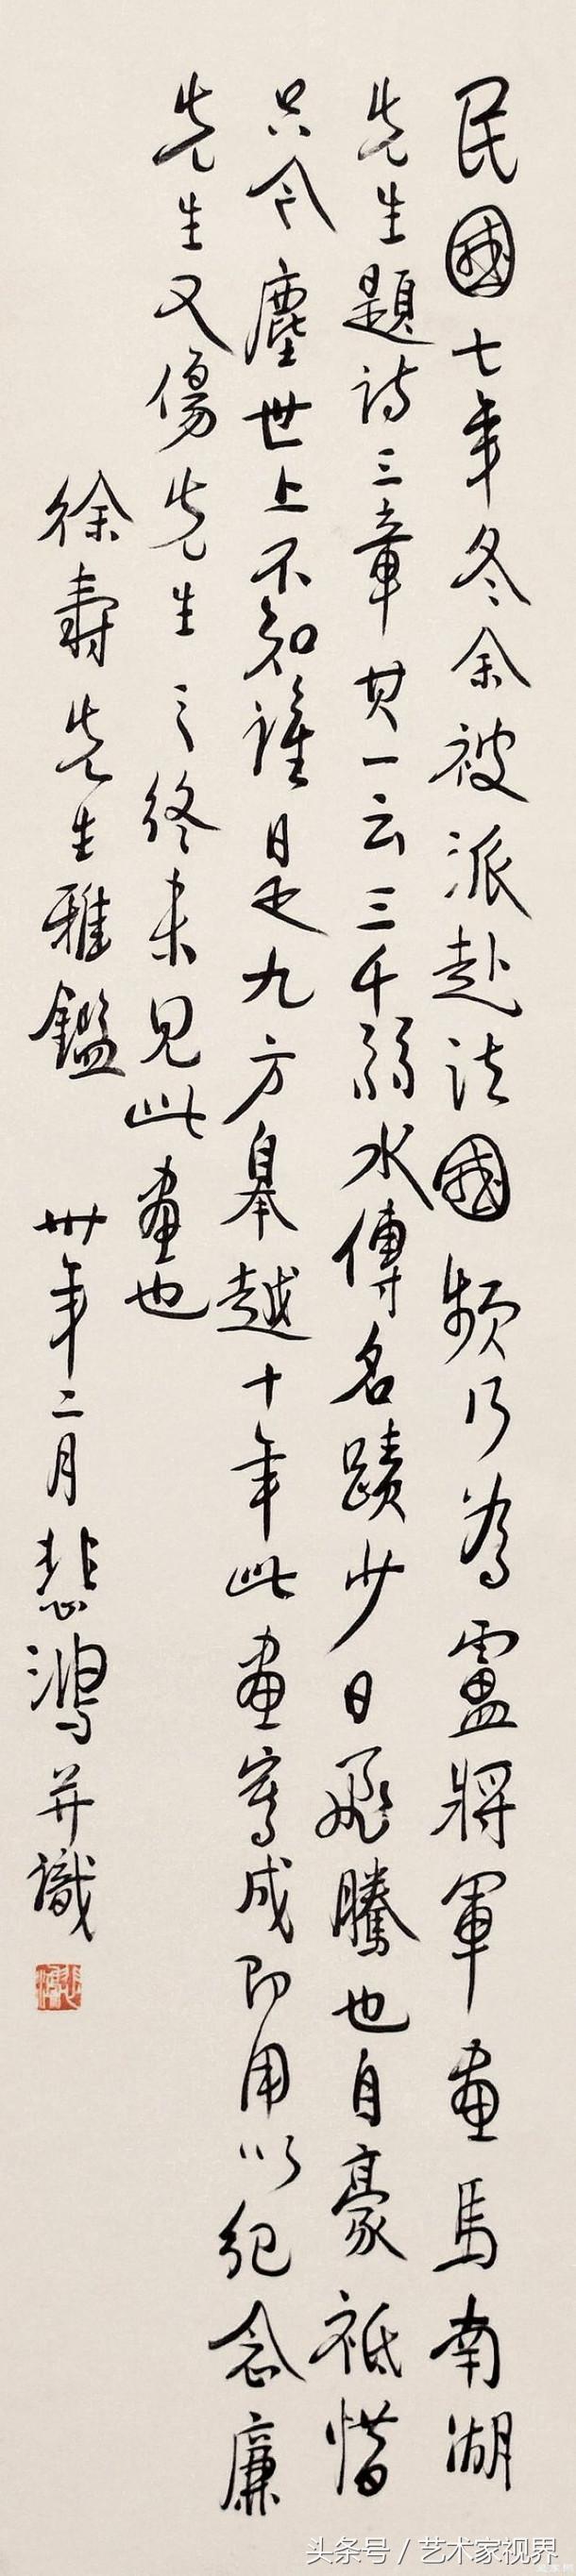 民國七年冬余被派赴法國頻行為盧將軍畫馬南湖
先生題詩三章其一云三千弱水傳名蹟少日飛騰也自豪祗惜
只今塵世上不知誰是九方皋越十年此畫寫成即用以紀念廉
先生又傷先生之終未見此畫也
徐壽先生雅鑑 卅年二月悲鴻并識
悲鴻
头条号 / 艺术家视界